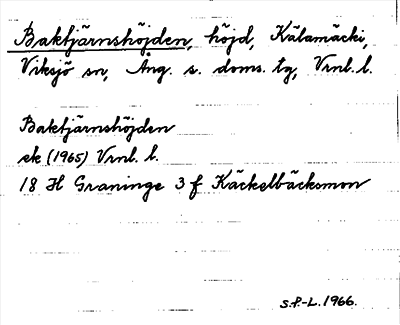 Baktjärnshöjden, höjd, Kälamäcki,
Viksjö sn, Ång. s. doms. tg, Vrnl. l.
Baktjärnshöjden
ek (1965) Vrnl. l.
18 H Graninge 3 f Käckelbäcksmon
S.P.-L. 1966.